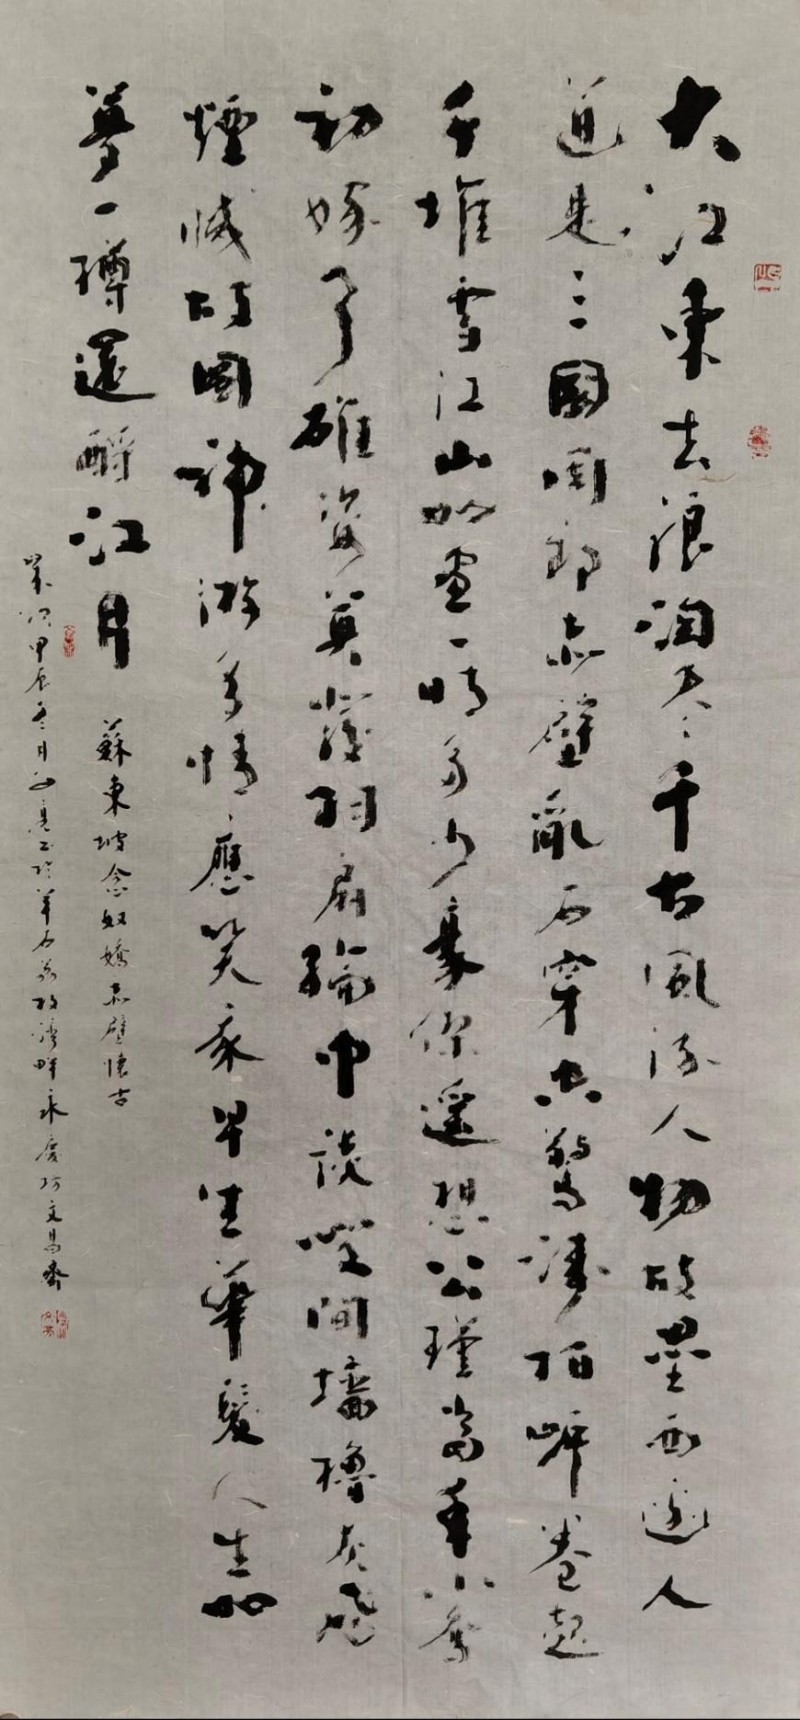 大江東去浪淘尽千古風流人物故壘西邊人
道是三國周郎赤壁亂石穿空驚濤拍岸卷起
千堆雪江山如畫一時多少豪傑遙想公瑾當年小喬
初嫁了雄姿英發羽扇綸巾談笑間墻櫓灰飛
煙滅故國神游多情應笑我早生華髮人生如
夢一樽還酹江月
蘇東坡念奴嬌赤壁懷古
歲次甲辰冬月於羊石荔枝灣畔永慶坊文昌齋